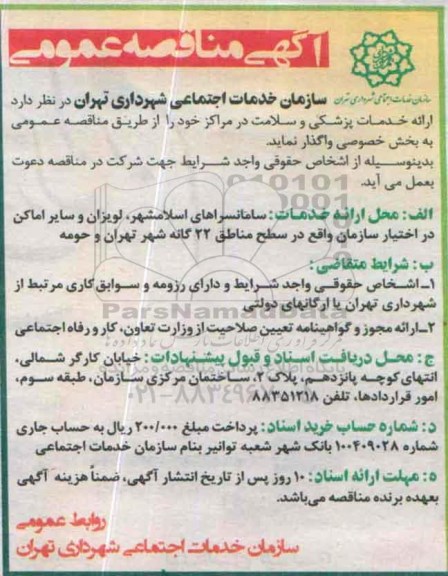 آگهی مناقصه عمومی
سازمان خدمات اجتماعی شهرداری تهران
سازمان خدمات اجتماعی شهرداری تهران در نظر دارد
ارائه خدمات پزشکی و سلامت در مراکز خود را از طریق مناقصه عمومی
به بخش خصوصی واگذار نماید.
بدینوسیله از اشخاص حقوقی واجد شرایط جهت شرکت در مناقصه دعوت
بعمل می آید.
الف: محل ارائه خدمات: سامانسراهای اسلامشهر، لویزان و سایر اماکن
در اختیار سازمان واقع در سطح مناطق ۲۲ گانه شهر تهران و حومه
ب: شرایط متقاضی:
۱ـ اشخاص حقوقی واجد شرایط و دارای رزومه و سوابق کاری مرتبط از
شهرداری تهران یا ارگانهای دولتی
۲ـ ارائه مجوز و گواهینامه تعیین صلاحیت از وزارت تعاون، کار و رفاه اجتماعی
ج: محل دریافت اسناد و قبول پیشنهادات: خیابان کارگر شمالی،
انتهای کوچه پانزدهم، پلاک ۲، ساختمان مرکزی سازمان، طبقه سوم،
امور قراردادها، تلفن ۸۸۳۵۱۲۱۸
د: شماره حساب خرید اسناد: پرداخت مبلغ ۲۰۰/۰۰۰ ریال به حساب جاری
شماره ۱۰۰۴۰۹۰۲۸ بانک شهر شعبه توانیر بنام سازمان خدمات اجتماعی
ه: مهلت ارائه اسناد: ۱۰ روز پس از تاریخ انتشار آگهی، ضمناً هزینه آگهی
بعهده برنده مناقصه می‌باشد.
روابط عمومی
سازمان خدمات اجتماعی شهرداری تهران
ParsNamadData